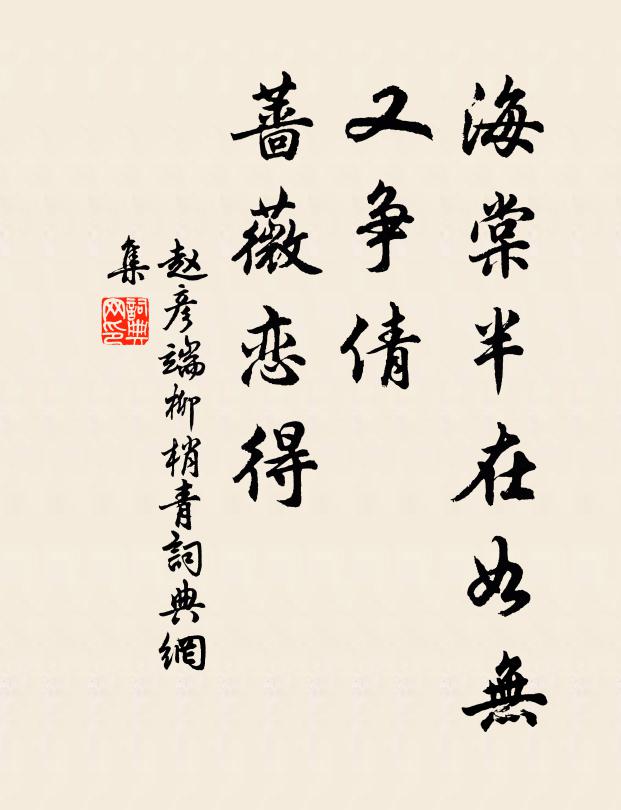 海棠半在如無
又争倩
薔薇恋得
赵彦端柳梢青詞典網
集
詞典
网印